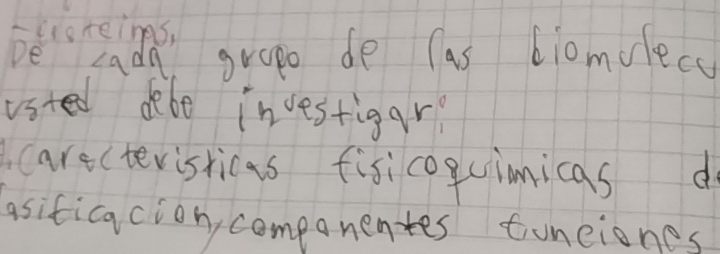 De cada grupo de las biomolecu
usted debe investigar:
caracteristicas fisicoquimicas d
asificacion, componentes funciones